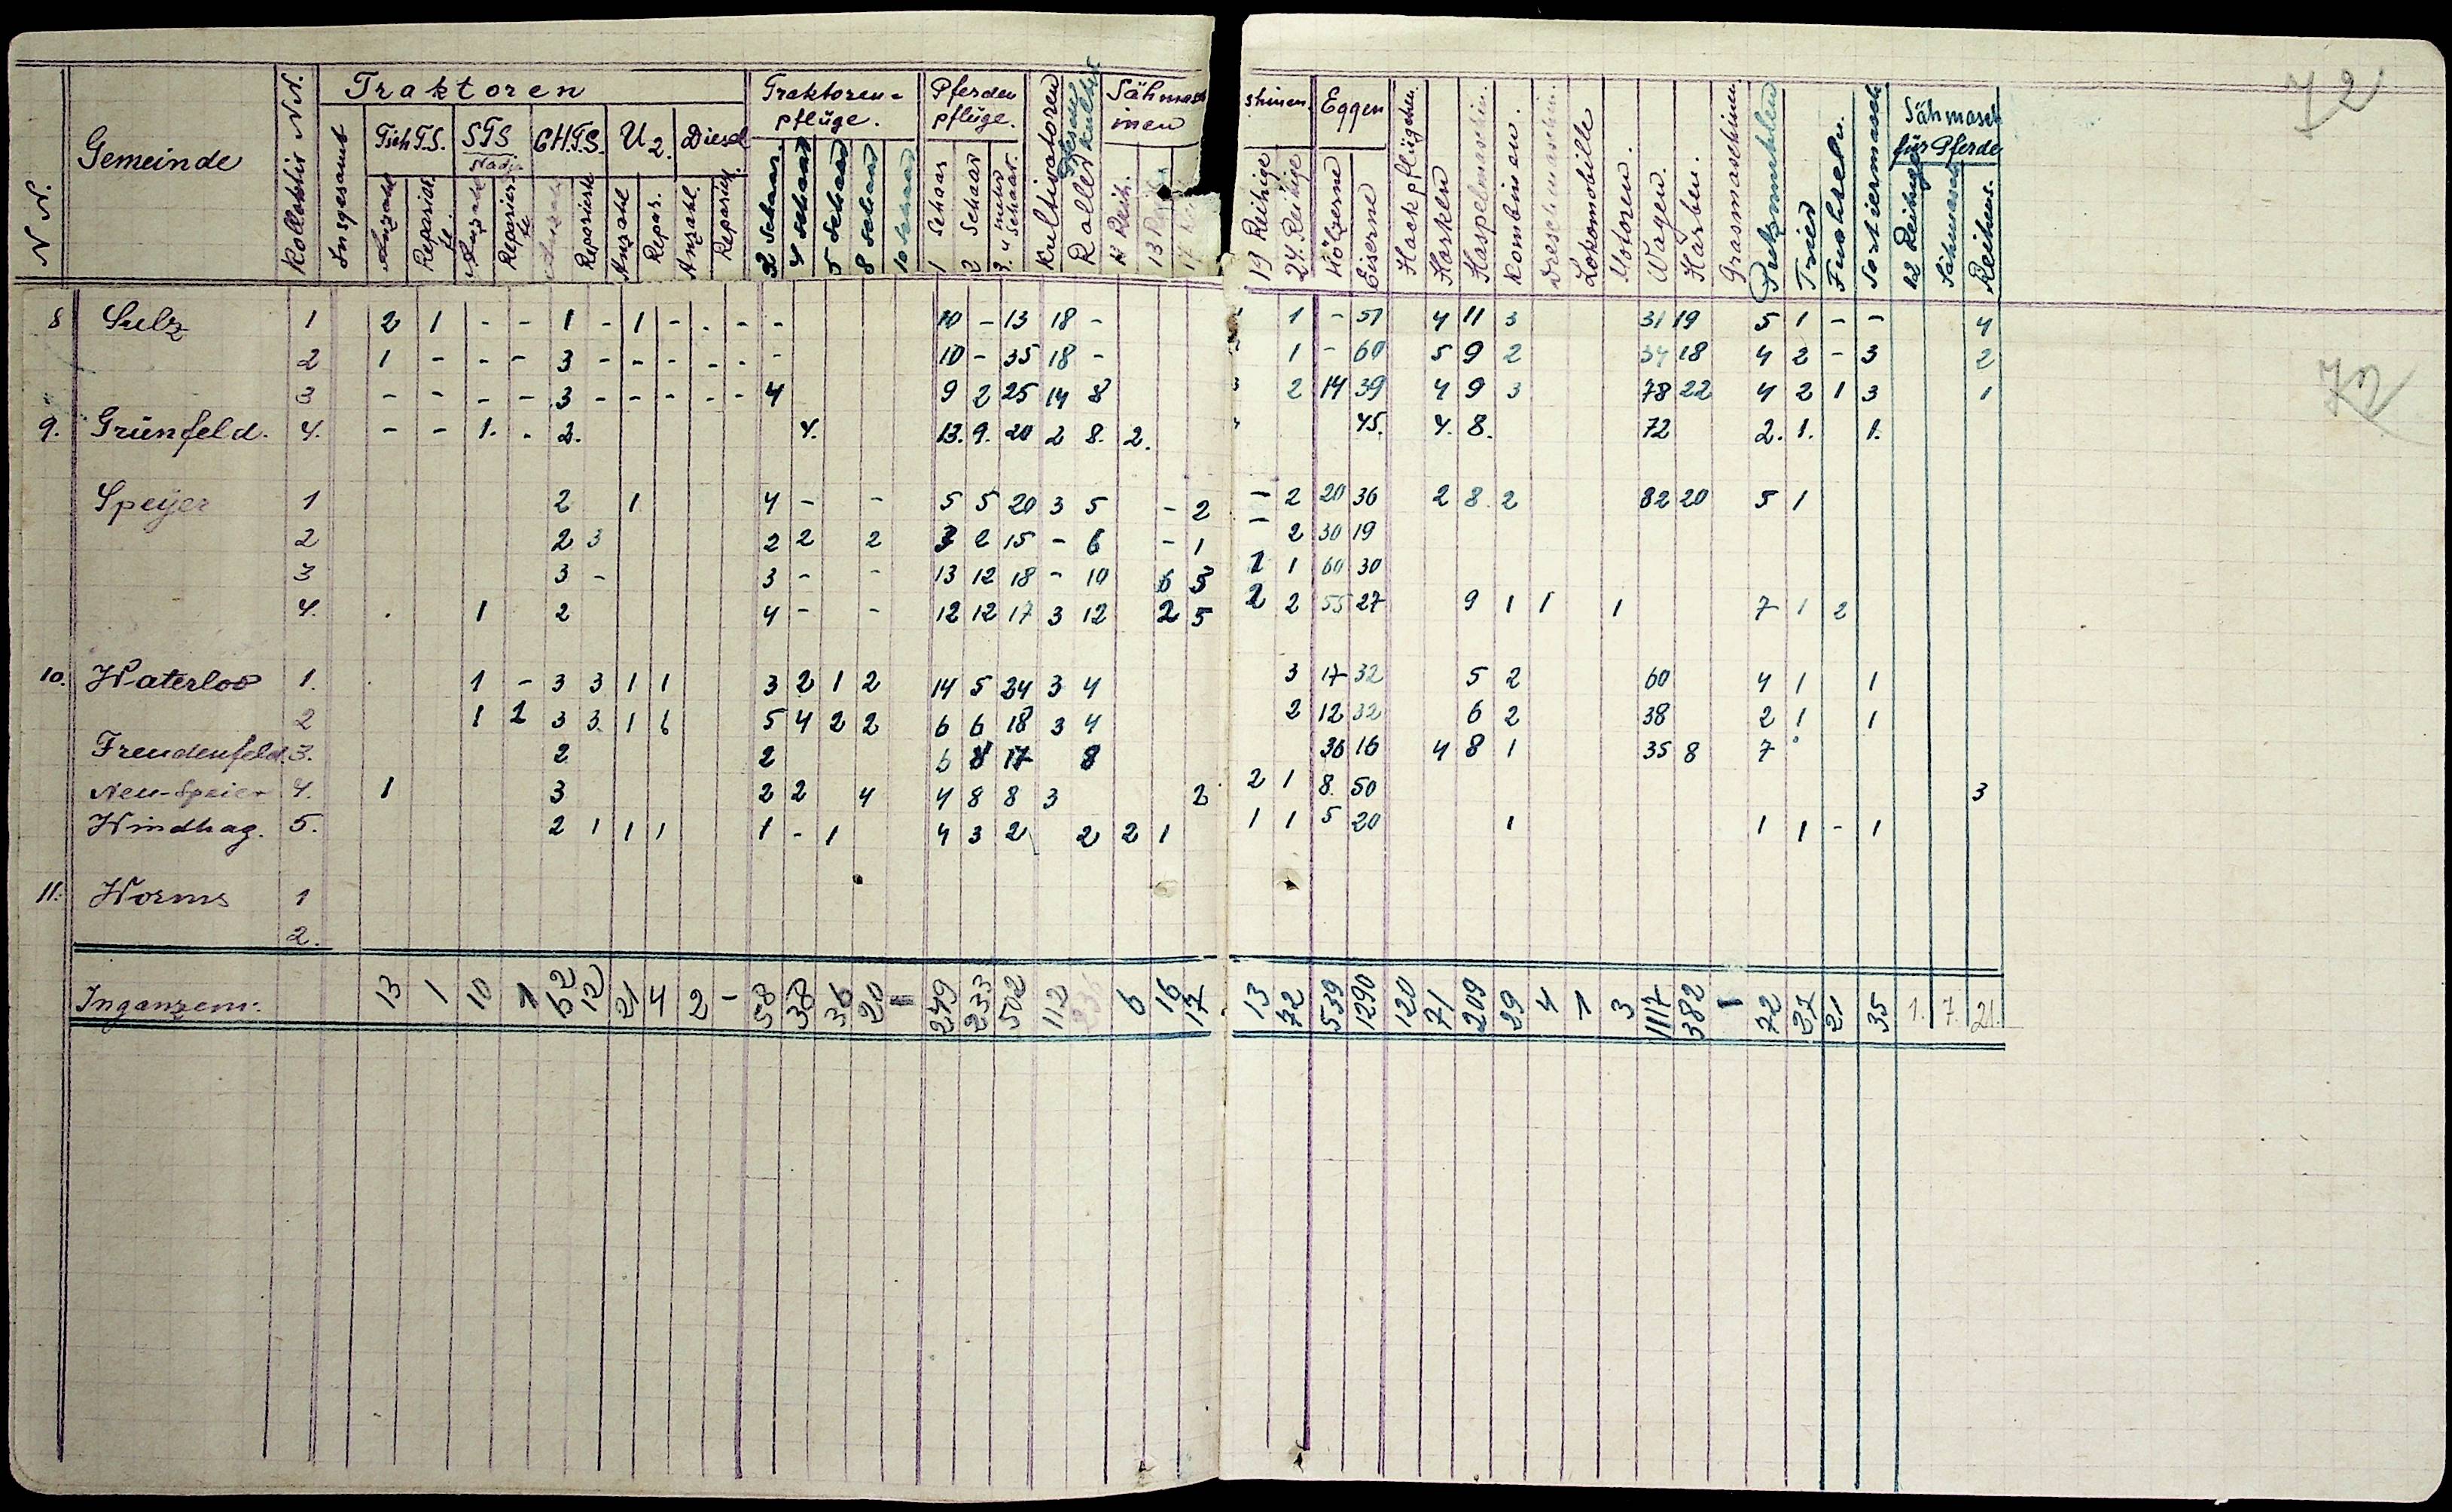 72
Traktoren Traktoren= Pferden Sähmasch shinen Eggen Sähmasch
Gemeinde TschT.S. STS CH.T.S. U2. Diesel pflüge. pflüge. inen für Pferde
Nadi
N N. Kollektiv N N. Insgesamt Anzahl Reparier te. Anzahl Reparier te Anzahl Reparierte Anzahl Repar. Anzahl. Repariert. 3 Schaar. 4 Schaar 5 Schaar 8 Schaar 10 Schaar 1 Schaar 2 Schaar 3. u mehr Schaar. Kultivatoren Roller 12 Reih. 13 19 Reihige 24. Reihige Hölzerne Eiserne Hackpflügchen. Harken Haspelmaschin. Kombinen. Dreschmaschin. Lokomobille Motoren. Wagen. Harben. Grasmaschinen Putzmühlen Trier Sortiermasch 12 Reihige Sähmasch Reihen.
8 Sulz 1 2 1 - - 1 - 1 - . - - 10 - 13 18 - 1 - 51 4 11 3 31 19 5 1 - - 4
2 1 - - - 3 - - - - - - 10 - 35 18 - 1 - 60 5 9 2 34 18 4 2 - 3 2
3 - - - - 3 - - - - - 4 9 2 25 14 8 3 2 14 39 4 9 3 78 22 4 2 1 3 1
72
9. Grünfeld. 4. - - 1. . 2. 4. 13. 9. 20 2 8. 2. 45. 4. 8. 72 2. 1. 1.
Speyer 1 2 1 4 - - 5 5 20 3 5 - 2 - 2 20 36 2 8 2 82 20 5 1
2 2 3 2 2 2 3 2 15 - 6 - 1 - 2 30 19
3 3 - 3 - - 13 12 18 - 10 6 5 1 1 60 30
4. . 1 2 4 - - 12 12 17 3 12 2 5 2 2 55 27 9 1 1 1 7 1 2
10. Waterloo 1. 1 - 3 3 1 1 3 2 1 2 14 5 24 3 4 3 17 32 5 2 60 4 1 1
2 1 1 3 3. 1 6 5 4 2 2 6 6 18 3 4 2 12 32 6 2 38 2 1 1
Freudenfeld. 3. 2 2 6 8 17 8 36 16 4 8 1 35 8 7
Neu-Speier 4. 1 3 2 2 4 4 8 8 3 2 2 1 8. 50 3
Windhag. 5. 2 1 1 1 1 - 1 4 3 2 2 2 1 1 1 5 20 1 1 1 - 1
11. Worms 1
2.
Inganzem: 13 1 10 1 62 12 21 4 2 - 58 38 36 20 - 249 233 502 112 236 6 16 17 13 42 539 1290 120 71 209 29 4 1 3 1117 382 1 72 27 21 35 1. 7. 21.